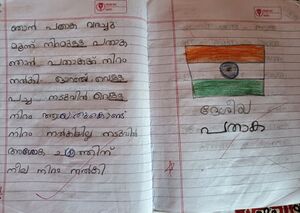 ഞാൻ പതാക വരച്ചു
മൂന്ന് നിറമുള്ള പതാക
ഞാൻ പതാകക്ക് നിറം
നൽകി വെള്ള
പച്ച നടുവിൽ വെള്ള
നിറം
നിറം നൽകിയില്ല നടുവിൽ
അശോക ചക്രത്തിന്
നീല നിറം നൽകി
ദേശീയ
പതാക